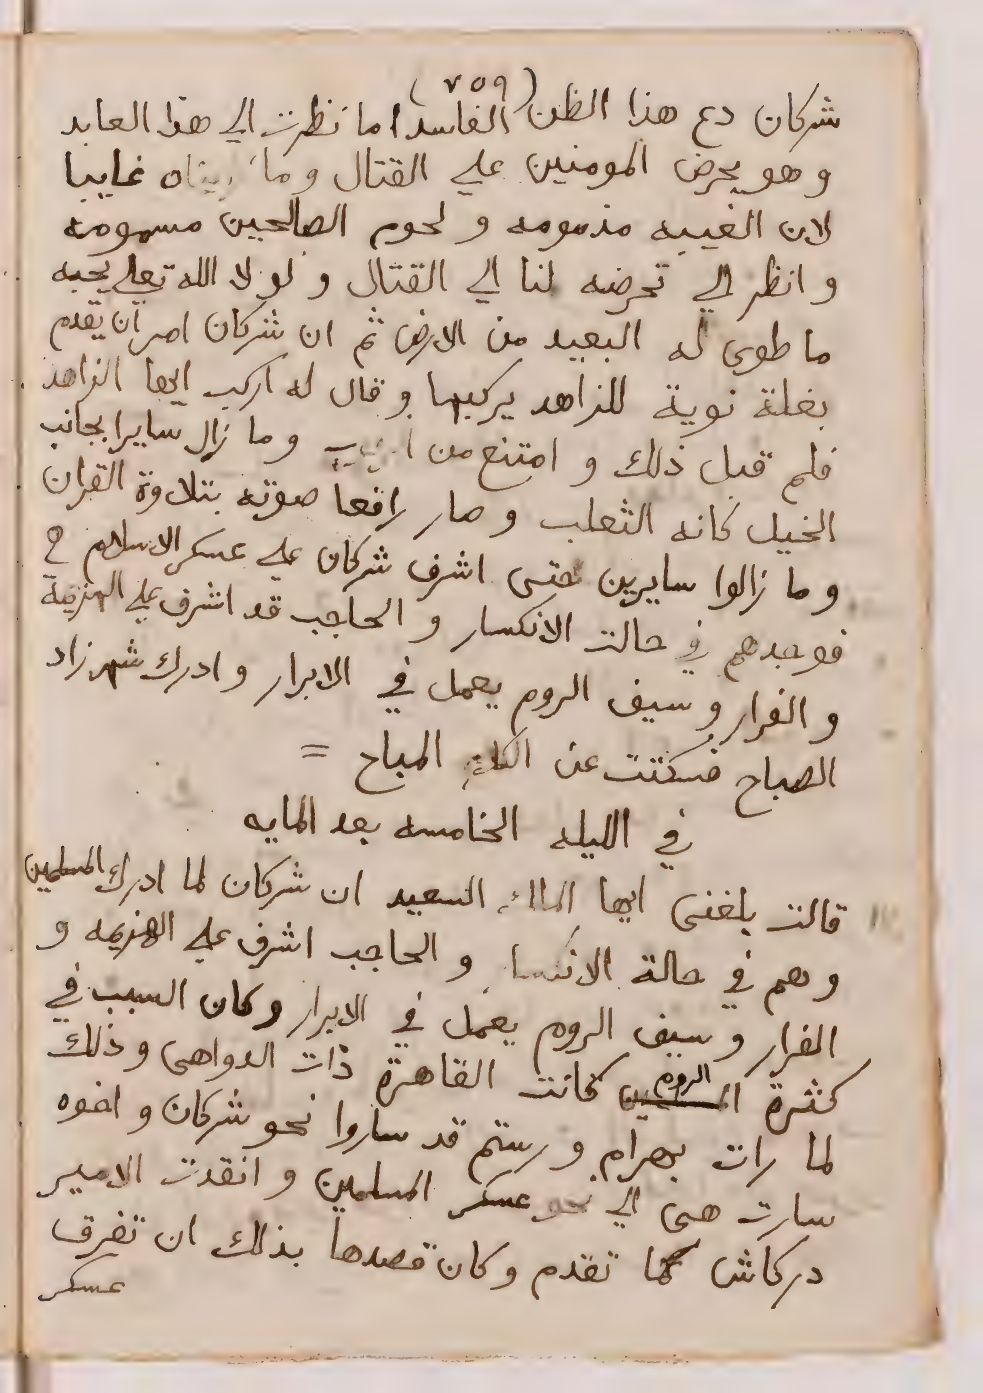 (٧٥٩)
شركان دع هذا الظن الفاسد اما نظرت الي هذا العابد
وهو يحرض المومنين علي القتال وما غايبا
لان الغيبه مذمومه ولحوم الصالحين مسمومه
وانظر الي تحرضه لنا الي القتال ولولا الله تعلي يحبه
ما طوى له البعيد من الارض ثم ان شركان امر ان يقدم
بغلة نوبة للزاهد يركبها وقال له اركب ايها الزاهد
فلم قبل ذلك وامتنع من وما زال سايرا بجانب
الخيل كانه الثعلب وصار رافعا صوته بتلاوة القران
وما زالوا سايرين حتى اشرف شركان علي عسكر الاسلام
فوجدهم في حالت الانكسار والحاجب قد اشرف علي الهزيمة
والفرار وسيف الروم يعمل في الابرار وادرك شهرزاد
الصباح فسكتت عن الكلام المباح =
في الليله الخامسه بعد المايه
قالت بلغنى ايها الملك السعيد ان شركان لما ادرك المسلمين
وهم في حالة الانكسار والحاجب اشرف علي الهزيمه و
الفرار وسيف الروم يعمل في الابرار وكان السبب في
كثرة الروم كانت القاهرة ذات الدواهى وذلك
لما رات بهرام ورستم قد ساروا نحو شركان واخوه
سارت هى الي نحو عسكر المسلمين وانقدت الامير
دركاش كما تقدم وكان قصدها بذلك ان تفرق
عسكر